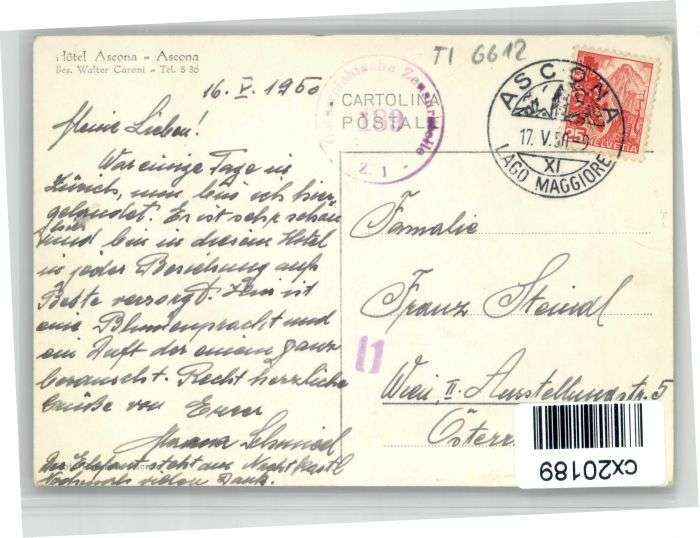 Hôtel Ascona - Ascona
Bes. Walter Caroni - Tel. 5 36
TI 6612
16. V. 1950
CARTOLINA
POSTALE
Österreichische Zensurstelle
189
Z. 1
ASCONA
17. V. 50
XI
LAGO MAGGIORE
25
HELVETIA
Meine Lieben!
War einige Tage in
Zürich, nun bin ich hier
gelandet. Er ist sehr schön
hier
und bin in diesem Hotel
in jeder Beziehung aufs
Beste versorgt. Hier ist
eine Blumenpracht und
ein Duft der einem ganz
berauscht. Recht herzliche
Grüße von Eurer
Schmidl
Der Elefant steht am Nachtkastl
Nochmals vielen Dank.
Familie
Franz Steindl
11
Wien, II. Ausstellungsstr. 5
Österr
cx20189